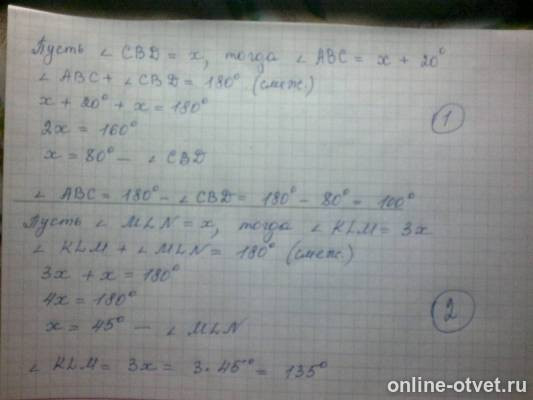 Пусть ∠ CBD = x, тогда ∠ ABC = x + 20°
∠ ABC + ∠ CBD = 180° (смеж.)
x + 20° + x = 180°
1
2x = 160°
x = 80° — ∠ CBD
∠ ABC = 180° - ∠ CBD = 180° - 80° = 100°
Пусть ∠ MLN = x, тогда ∠ KLM = 3x
∠ KLM + ∠ MLN = 180° (смеж.)
3x + x = 180°
4x = 180°
2
x = 45° — ∠ MLN
∠ KLM = 3x = 3 · 45° = 135°
online-otvet.ru